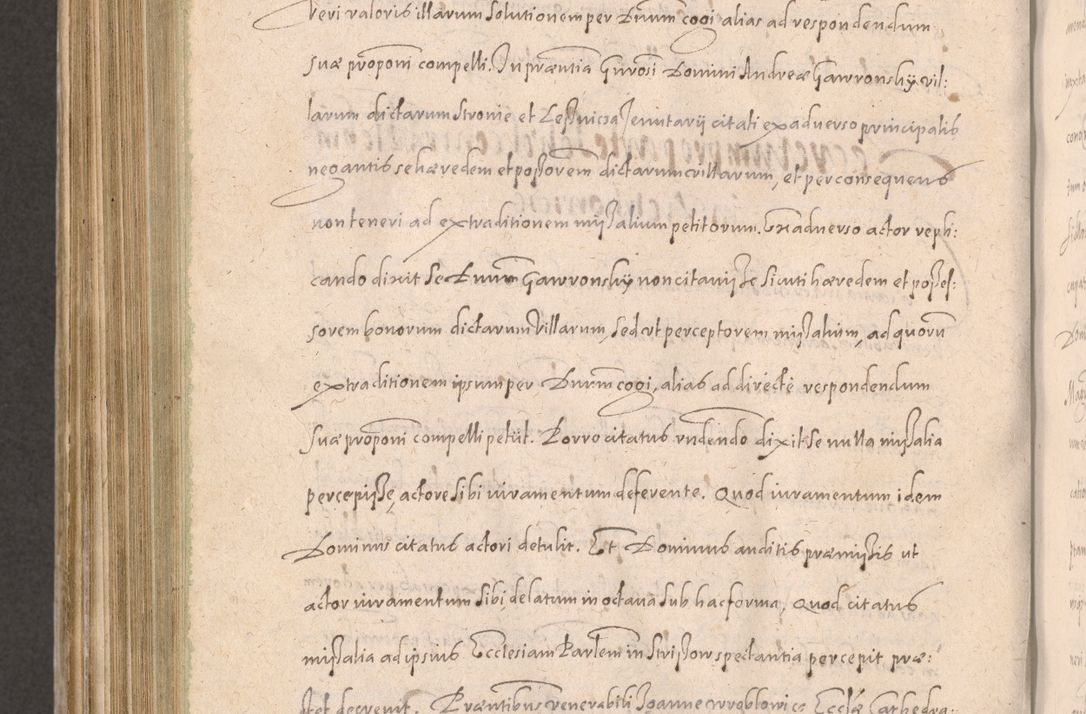 veri valoris illarum solutionem per Dnum cogi alias ad respondendum
suæ proponi compelli. In præntia Gnrosi Domini Andreæ Gawronsky vil:
larum dictarum Stronie et Leßnicza Tenutarÿ citati ex aduerso principalis
negantis se hæredem et poßorem dictarum villarum, et per consequens
non teneri ad extraditionem mißalium petitorum. Ex aduerso actor repli:
cando dixit se Dnum Gawronsky non citauiße sicuti hæredem et poßes:
sorem bonorum dictarum villarum, sed ut perceptorem mißalium, ad quorũ
extraditionem ipsum per Dnum cogi, alias ad directe respondendum
suæ proponi compelli petÿt. Porro citatus rndendo dixit se nulla mißalia
percepiße, actore sibi iuramentum deferente. Quod iuramentum idem
Dominus citatus actori detulit. Et Dominus auditis præmißis ut
actor iuramentum sibi delatum in octaua sub hac forma, Quod citatus
mißalia ad ipsius Ecclesiam Parlem in Strißow spectantia percepit præ:
stet decreuit. Præntibus venerabili Joanne Wroblowicz Ecclæ Cathedra: